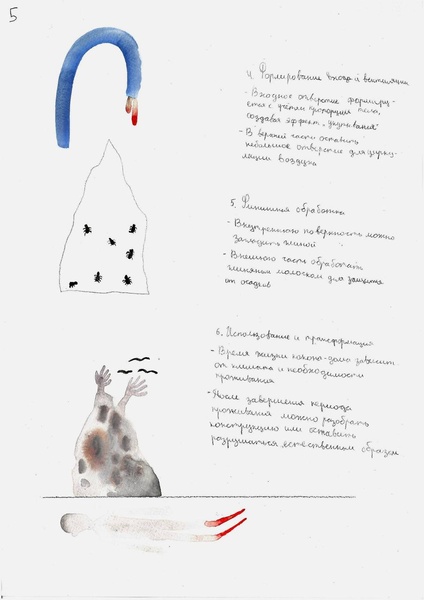 5
4. Формирование входа и вентиляции
- Входное отверстие формиру-
ется с учётом пропорций тела,
создавая эффект „укутывания"
- В верхней части оставить
небольшое отверстие для цирку-
ляции воздуха
5. Финишная обработка
- Внутреннюю поверхность можно
загладить глиной
- Внешнюю часть обработать
глиняным молочком для защиты
от осадков
6. Использование и трансформация
- Время жизни кокона-дома зависит
от климата и необходимости
проживания
- После завершения периода
проживания можно разобрать
конструкцию или оставить
разрушаться естественным образом